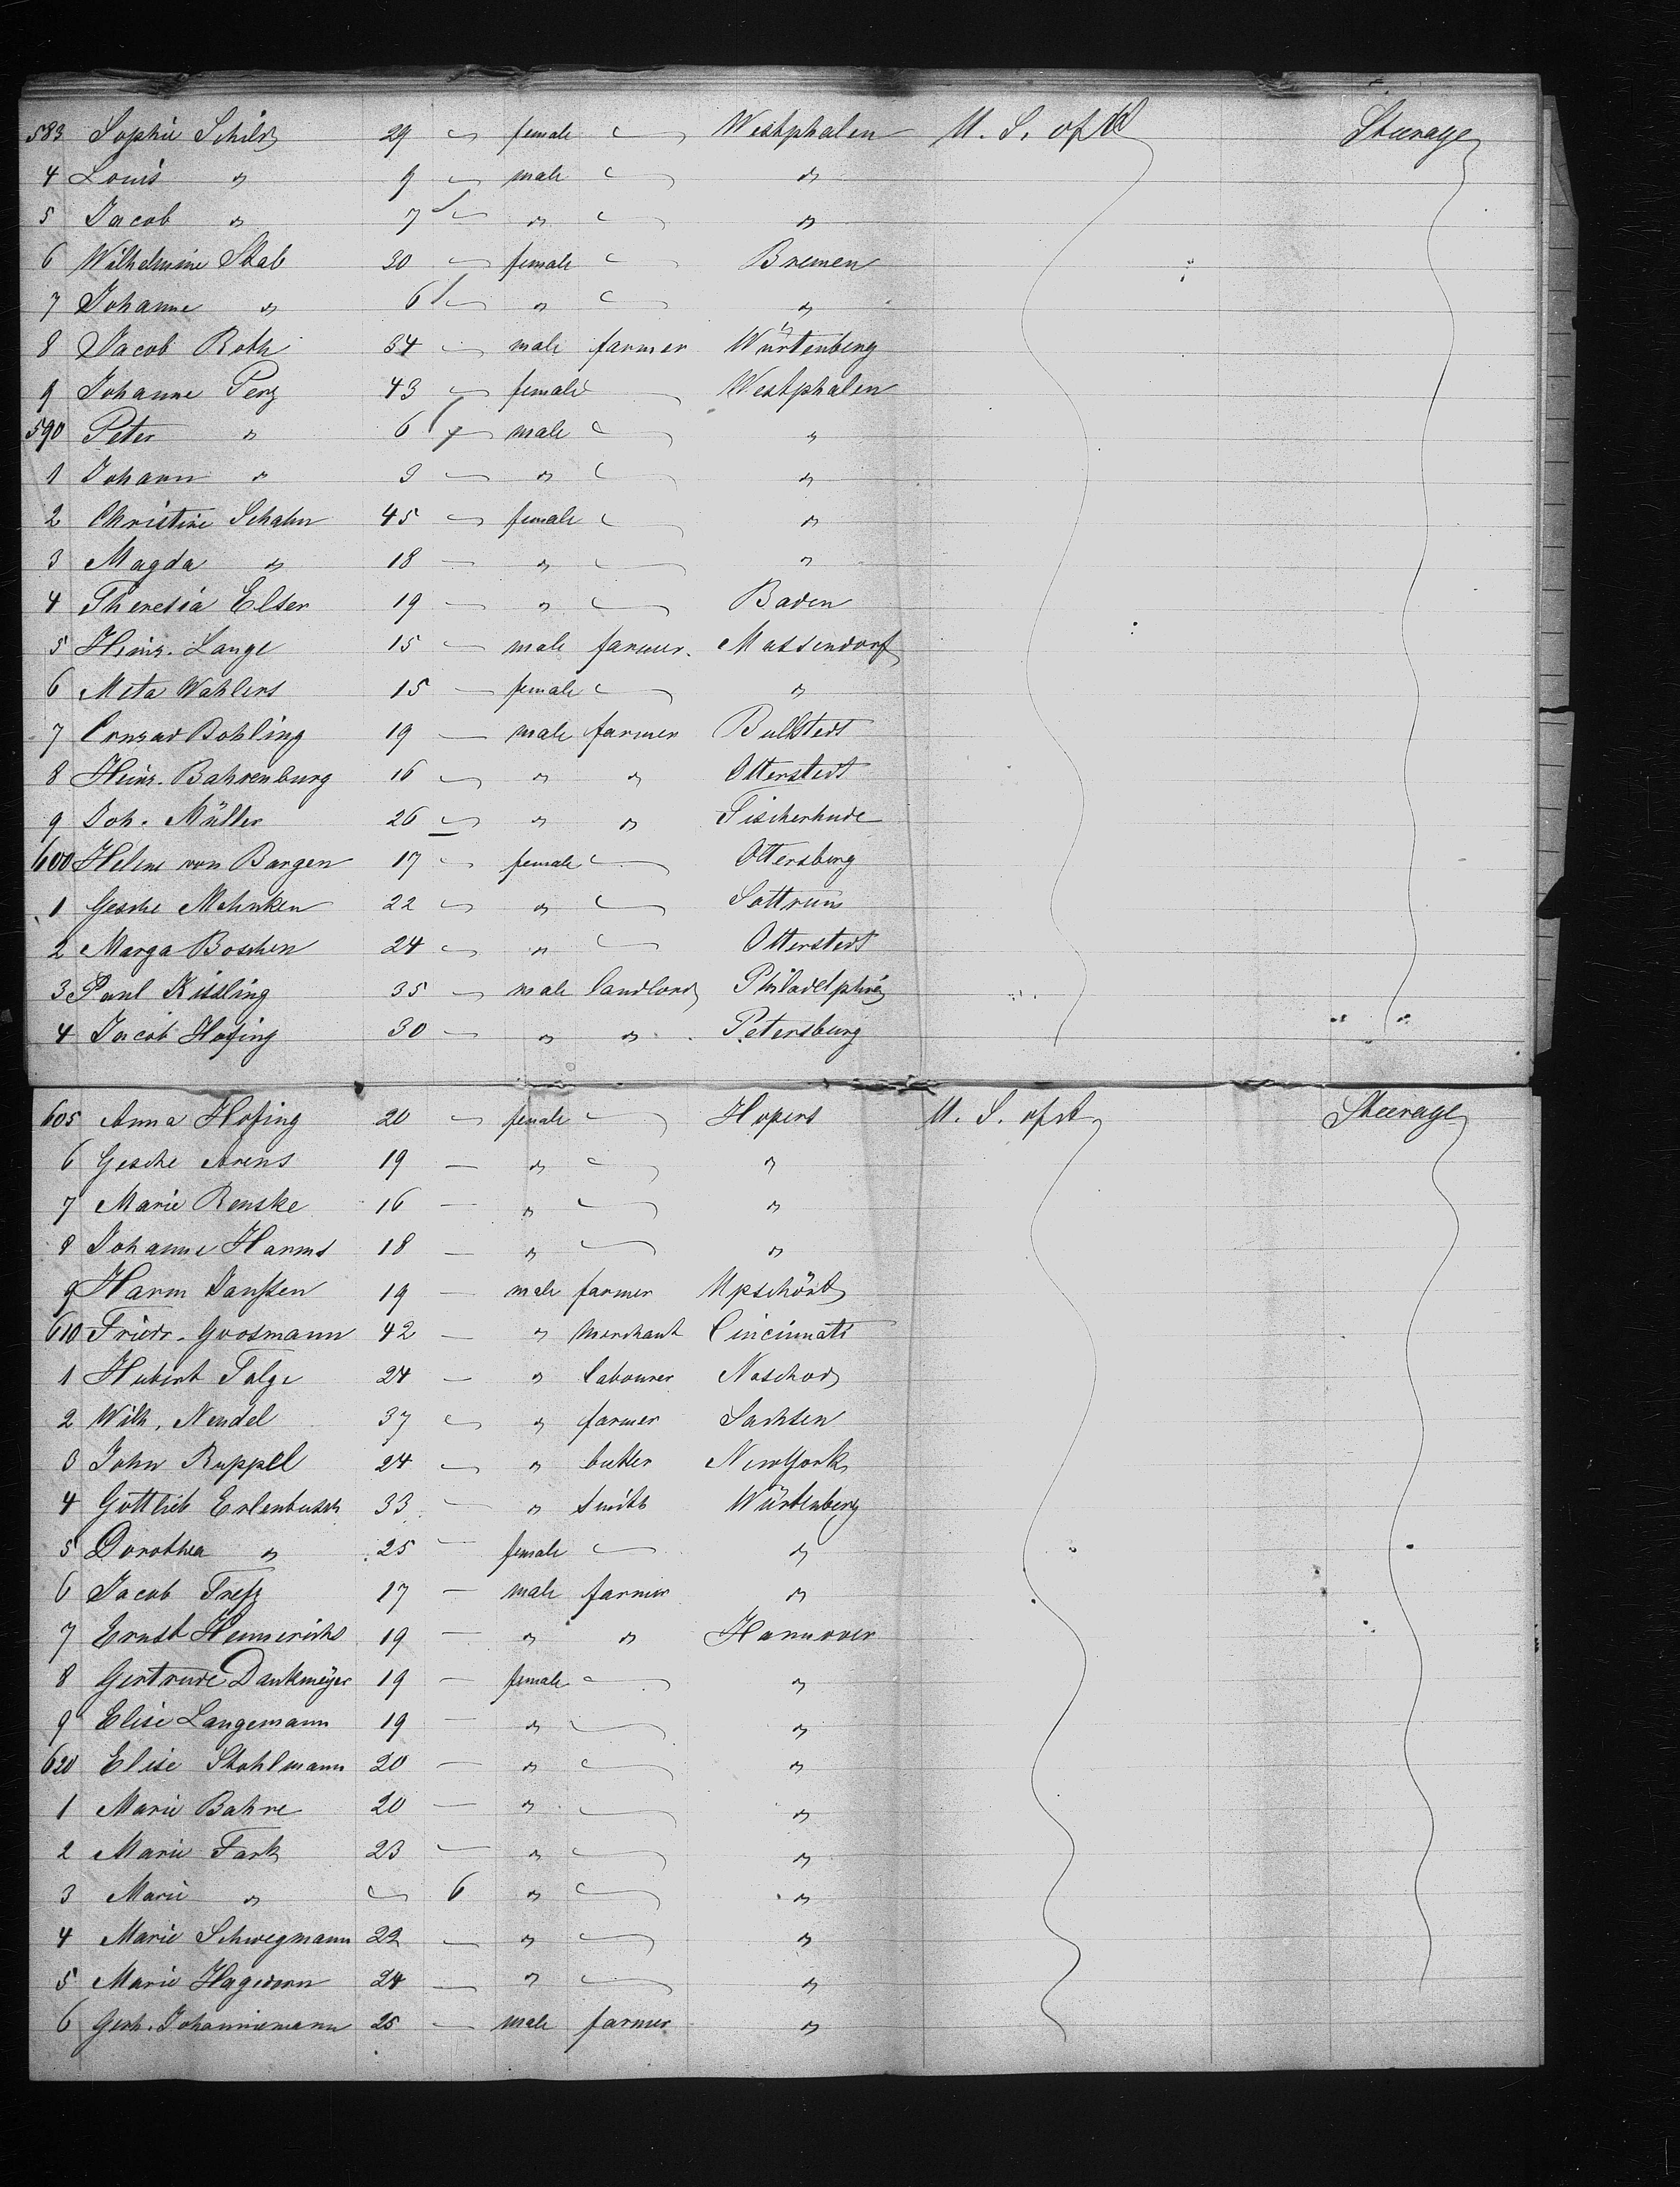 583 Sophie Schild 29 — female — Westphalen U. S. of A Steerage
4 Louis " 9 — male — "
5 Jacob " 7 — " — "
6 Wilhelmine Stab 30 — female — Bremen
7 Johanne " 6 — " — "
8 Jacob Roth 34 — male farmer Würtenberg
9 Johanne Perz 43 — female — Westphalen
590 Peter " 6 — male — "
1 Johann " 3 — " — "
2 Christine Schahn 45 — female — "
3 Magda " 18 — " — "
4 Theresia Elser 19 — " — Baden
5 Heinr. Lange 15 — male farmer. Massendorf
6 Meta Wahlers 15 — female — "
7 Conrad Bohling 19 — male farmer Bullstedt
8 Heinr. Bahrenburg 16 — " " Otterstedt
9 Joh. Müller 26 — " " Fischerhude
600 Helene von Bargen 17 — female — Ottersberg
1 Gesche Mahnken 22 — " — Sottrum
2 Marga Boschen 24 — " — Otterstedt
3 Paul Kissling 35 — male landlord Philadelphia
4 Jacob Hofing 30 — " " Petersburg
605 Anna Hofing 20 — female — Hopers U. S. of A Steerage
6 Gesche Arens 19 — " — "
7 Marie Renske 16 — " — "
8 Johanne Harms 18 — " — "
9 Harm Janssen 19 — male farmer Upschört
610 Friedr. Goosmann 42 — " Merchant Cincinnati
1 Hubert Falge 24 — " labourer
2 Wilh. Nendel 37 — " farmer Sachsen
3 John Ruppel 24 — " butler New York
4 Gottlieb Erlenbusch 33 — " smith Würtenberg
5 Dorothea " 25 — female — "
6 Jacob Trefz 17 — male farmer "
7 Ernst Hemmerichs 19 — " " Hannover
8 Gertrude Dankmeyer 19 — female — "
9 Elise Langemann 19 — " — "
620 Elise Stahlmann 20 — " — "
1 Marie Bahre 20 — " — "
2 Marie Fark 23 — " — "
3 Marie " — 6 " — "
4 Marie Schwegmann 22 — " — "
5 Marie Hagedorn 24 — " — "
6 Gerh. Johanniemann 25 — male farmer "